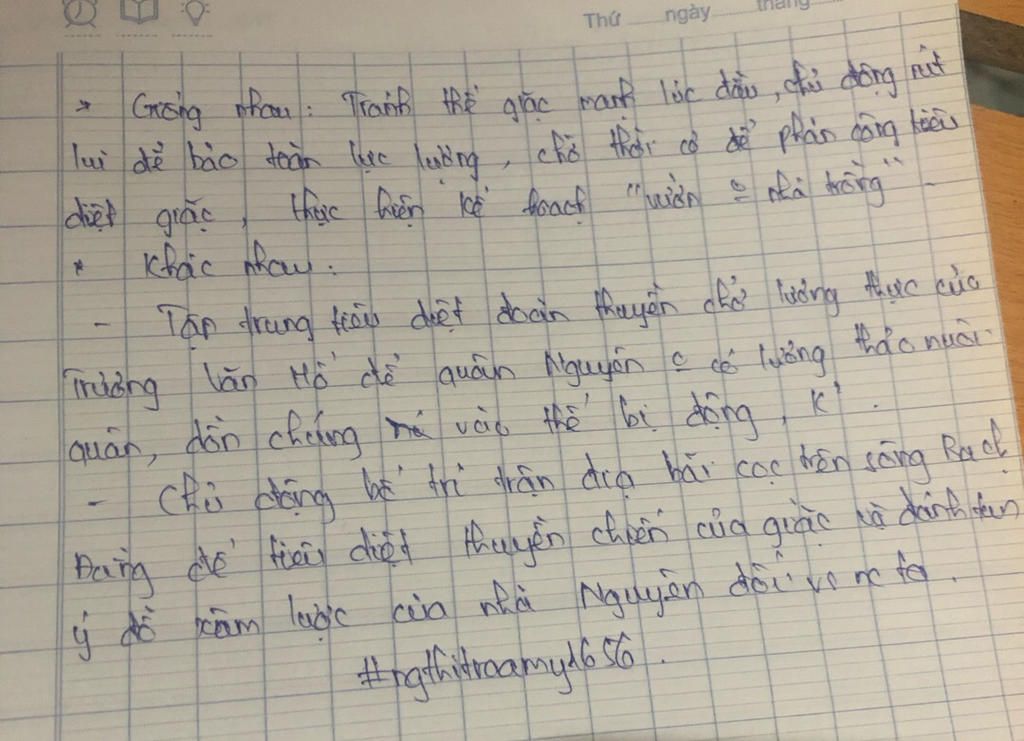 Thứ ngày tháng
* Giống nhau: Tránh thế giặc mạnh lúc đầu, chủ động rút
lui để bảo toàn lực lượng, chờ thời cơ để phản công tiêu
diệt giặc, thực hiện kế hoạch "vườn o nhà trống"
* Khác nhau:
- Tập trung tiêu diệt đoàn thuyền chở lương thực của
Trương Văn Hổ để quân Nguyên o có lương thảo nuôi
quân, dồn chúng vào thế bị động, K'.
- Chủ động bố trí trận địa bãi cọc trên sông Bạch
Đằng để tiêu diệt thuyền chiến của giặc và đánh tan
ý đồ xâm lược của nhà Nguyên đối vs nc ta.
#ngthitraamy1656.